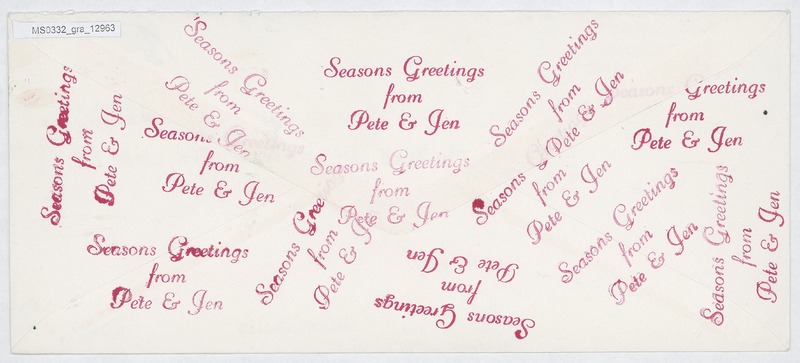 MS0332_gra_12963
Seasons Greetings
from
Pete & Jen
Seasons Greetings
from
Pete & Jen
Seasons Greetings
from
Pete & Jen
Seasons Greetings
from
Pete & Jen
Greetings
from
Pete & Jen
Seasons
from
Pete & Jen
Seasons Greetings
from
Pete & Jen
Seasons
from
Pete & Jen
Seasons Greetings
from
Pete & Jen
Seasons Greetings
from
Pete & Jen
Seasons Gree
from
Pete & J
Seasons Greetings
from
Pete & Jen
Seasons Greetings
from
Pete & Jen